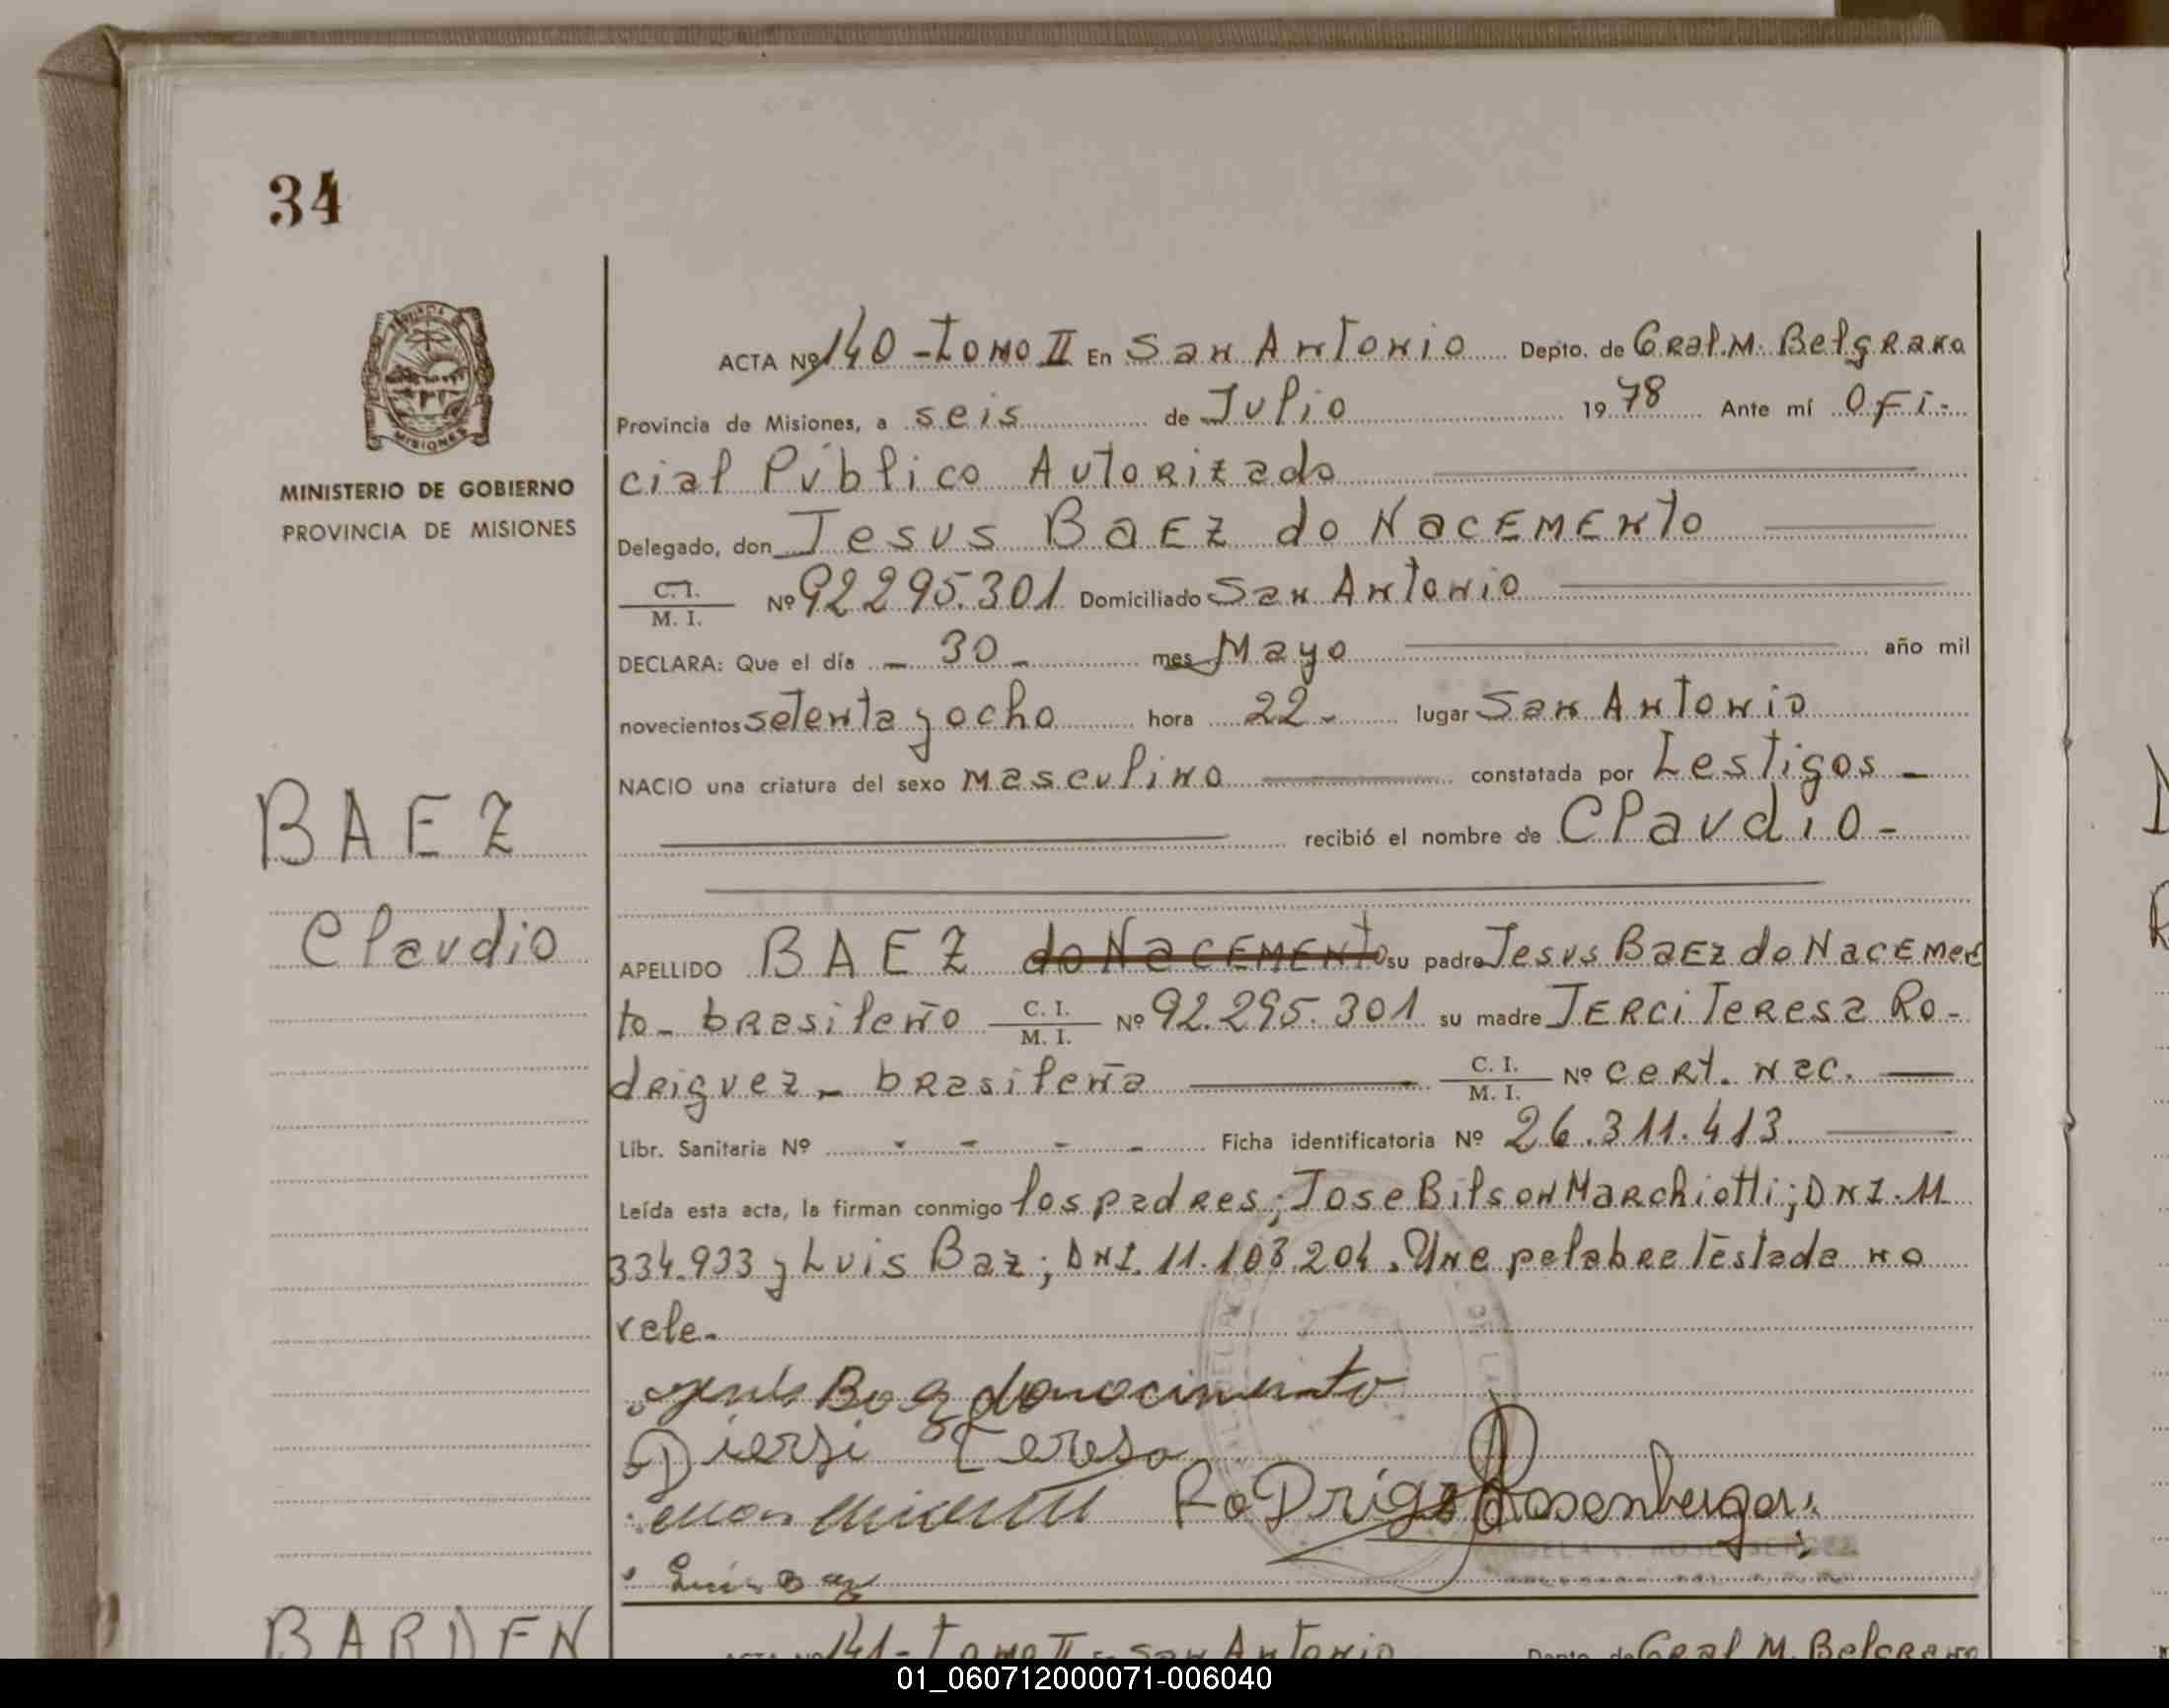 34
MINISTERIO DE GOBIERNO
PROVINCIA DE MISIONES
ACTA Nº 140 - Tomo II En San Antonio Depto. de Gral. M. Belgrano
Provincia de Misiones, a seis de Julio 19 78 Ante mí Ofi-
cial Público Autorizado
Delegado, don Jesus BaEz do NaCEMENto
C. I. / M. I. Nº 92295.301 Domiciliado San Antonio
DECLARA: Que el día - 30 - mes Mayo año mil
novecientos setenta y ocho hora 22 - lugar San Antonio
NACIO una criatura del sexo masculino constatada por Testigos -
recibió el nombre de Claudio -
BAEZ
Claudio
APELLIDO BAEZ do NaCEMENto su padre Jesus BaEz do NaCEMen
to - brasileño C. I. / M. I. Nº 92.295.301 su madre JERCi Teresa Ro-
driguez - brasileña C. I. / M. I. Nº cert. nac.
Libr. Sanitaria Nº - - - - Ficha identificatoria Nº 26.311.413
Leída esta acta, la firman conmigo los padres; Jose Bilson Marchiotti; DNI. 11
334.933 y Luis Baz; DNI. 11.103.204. Une palabre testade no
vale.
donocimento
Diersi Teresa
RoDrigo Rosenberger
Luis Baz
BARDEN
141 - Tomo II En San Antonio Depto. de Gral M. Belgrano
01_060712000071-006040